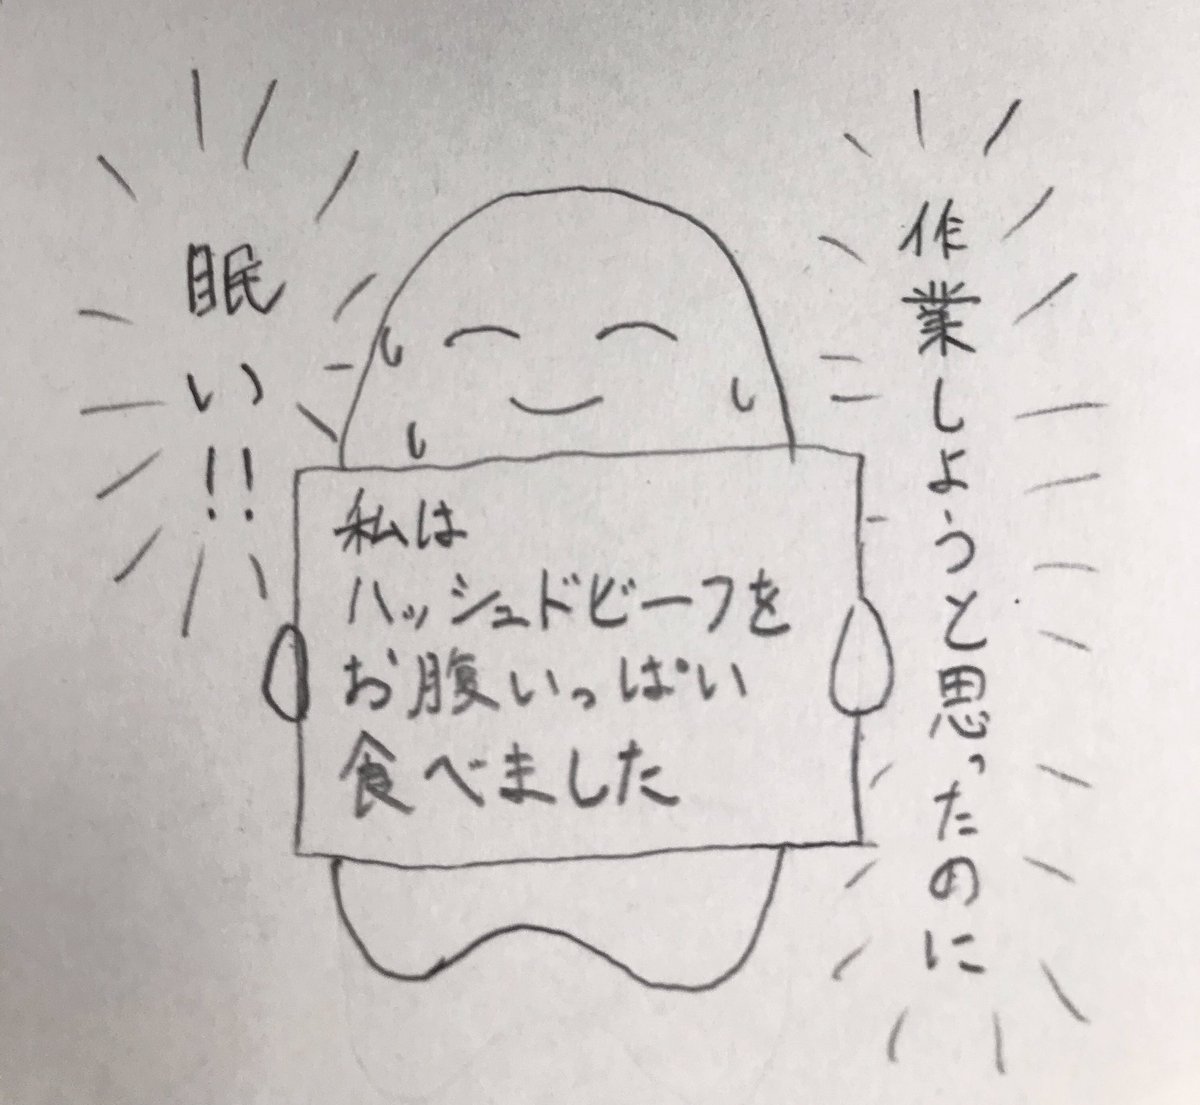 作業しようと思ったのに
眠い!!
私は
ハッシュドビーフを
お腹いっぱい
食べました